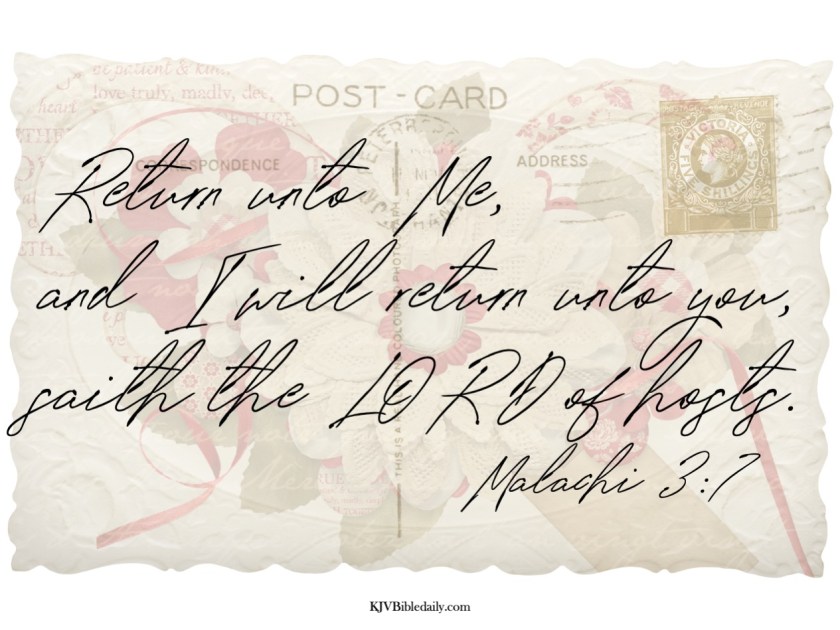 be patient & kind
love truly, madly, dee
heart
POST-CARD
CORRESPONDENCE
ADDRESS
VICTORIA
FIVE SHILLINGS
Return unto Me,
and I will return unto you,
saith the LORD of hosts.
Malachi 3:7
THIS IS A
KJVBibledaily.com